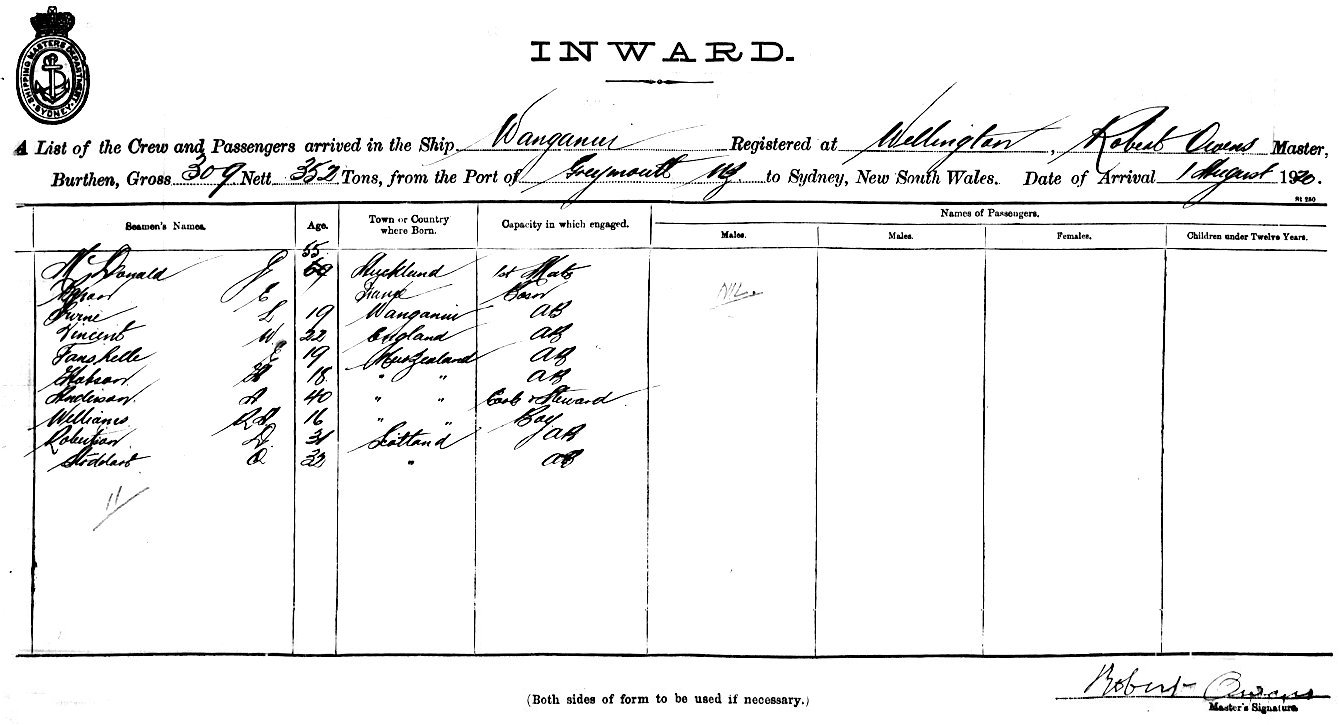 SHIPPING MASTERS DEPARTMENT SYDNEY
INWARD.
A List of the Crew and Passengers arrived in the Ship, Wanganui Registered at Wellington, Robert Owens Master,
Burthen, Gross 309 Nett 352 Tons, from the Port of Greymouth NZ to Sydney, New South Wales. Date of Arrival 1 August 1920.
St 280
Seamen's Names. Age. Town or Country where Born. Capacity in which engaged. Names of Passengers.
Males. Males. Females. Children under Twelve Years.
55
McDonald J Auckland 1st Mate
E Bosun Nil.
L 19 Wanganui AB
Vincent W 22 England AB
E 19 New Zealand AB
Hobson H 18 " " AB
Anderson A 40 " " Cook & Steward
Williams 16 " " Boy
Robertson D 31 Scotland AB
Stoddart O 33 " AB
11
Robert Owens
(Both sides of form to be used if necessary.)
Master's Signature